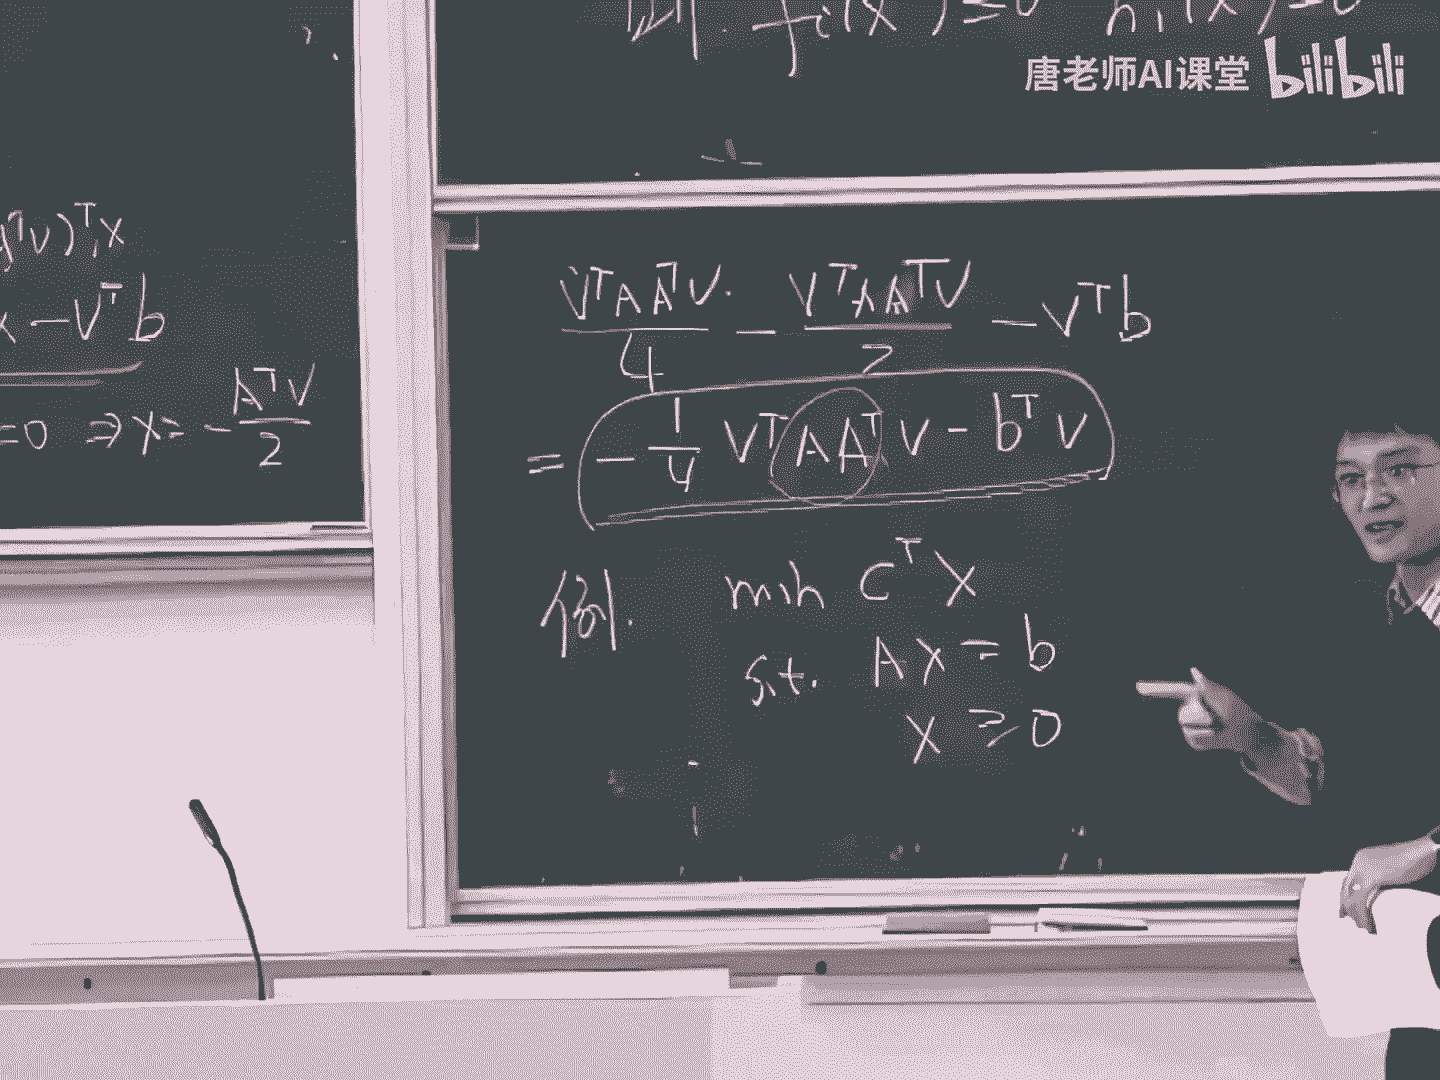 唐老师AI课堂 bilibili
ᵀV)ᵀX
x - Vᵀb
=0 ⇒ X = - AᵀV/2
VᵀAAᵀV/4 - VᵀAAᵀV/2 - Vᵀb
= - 1/4 VᵀAAᵀV - bᵀV
例. min CᵀX
s.t. AX = b
X ≥ 0